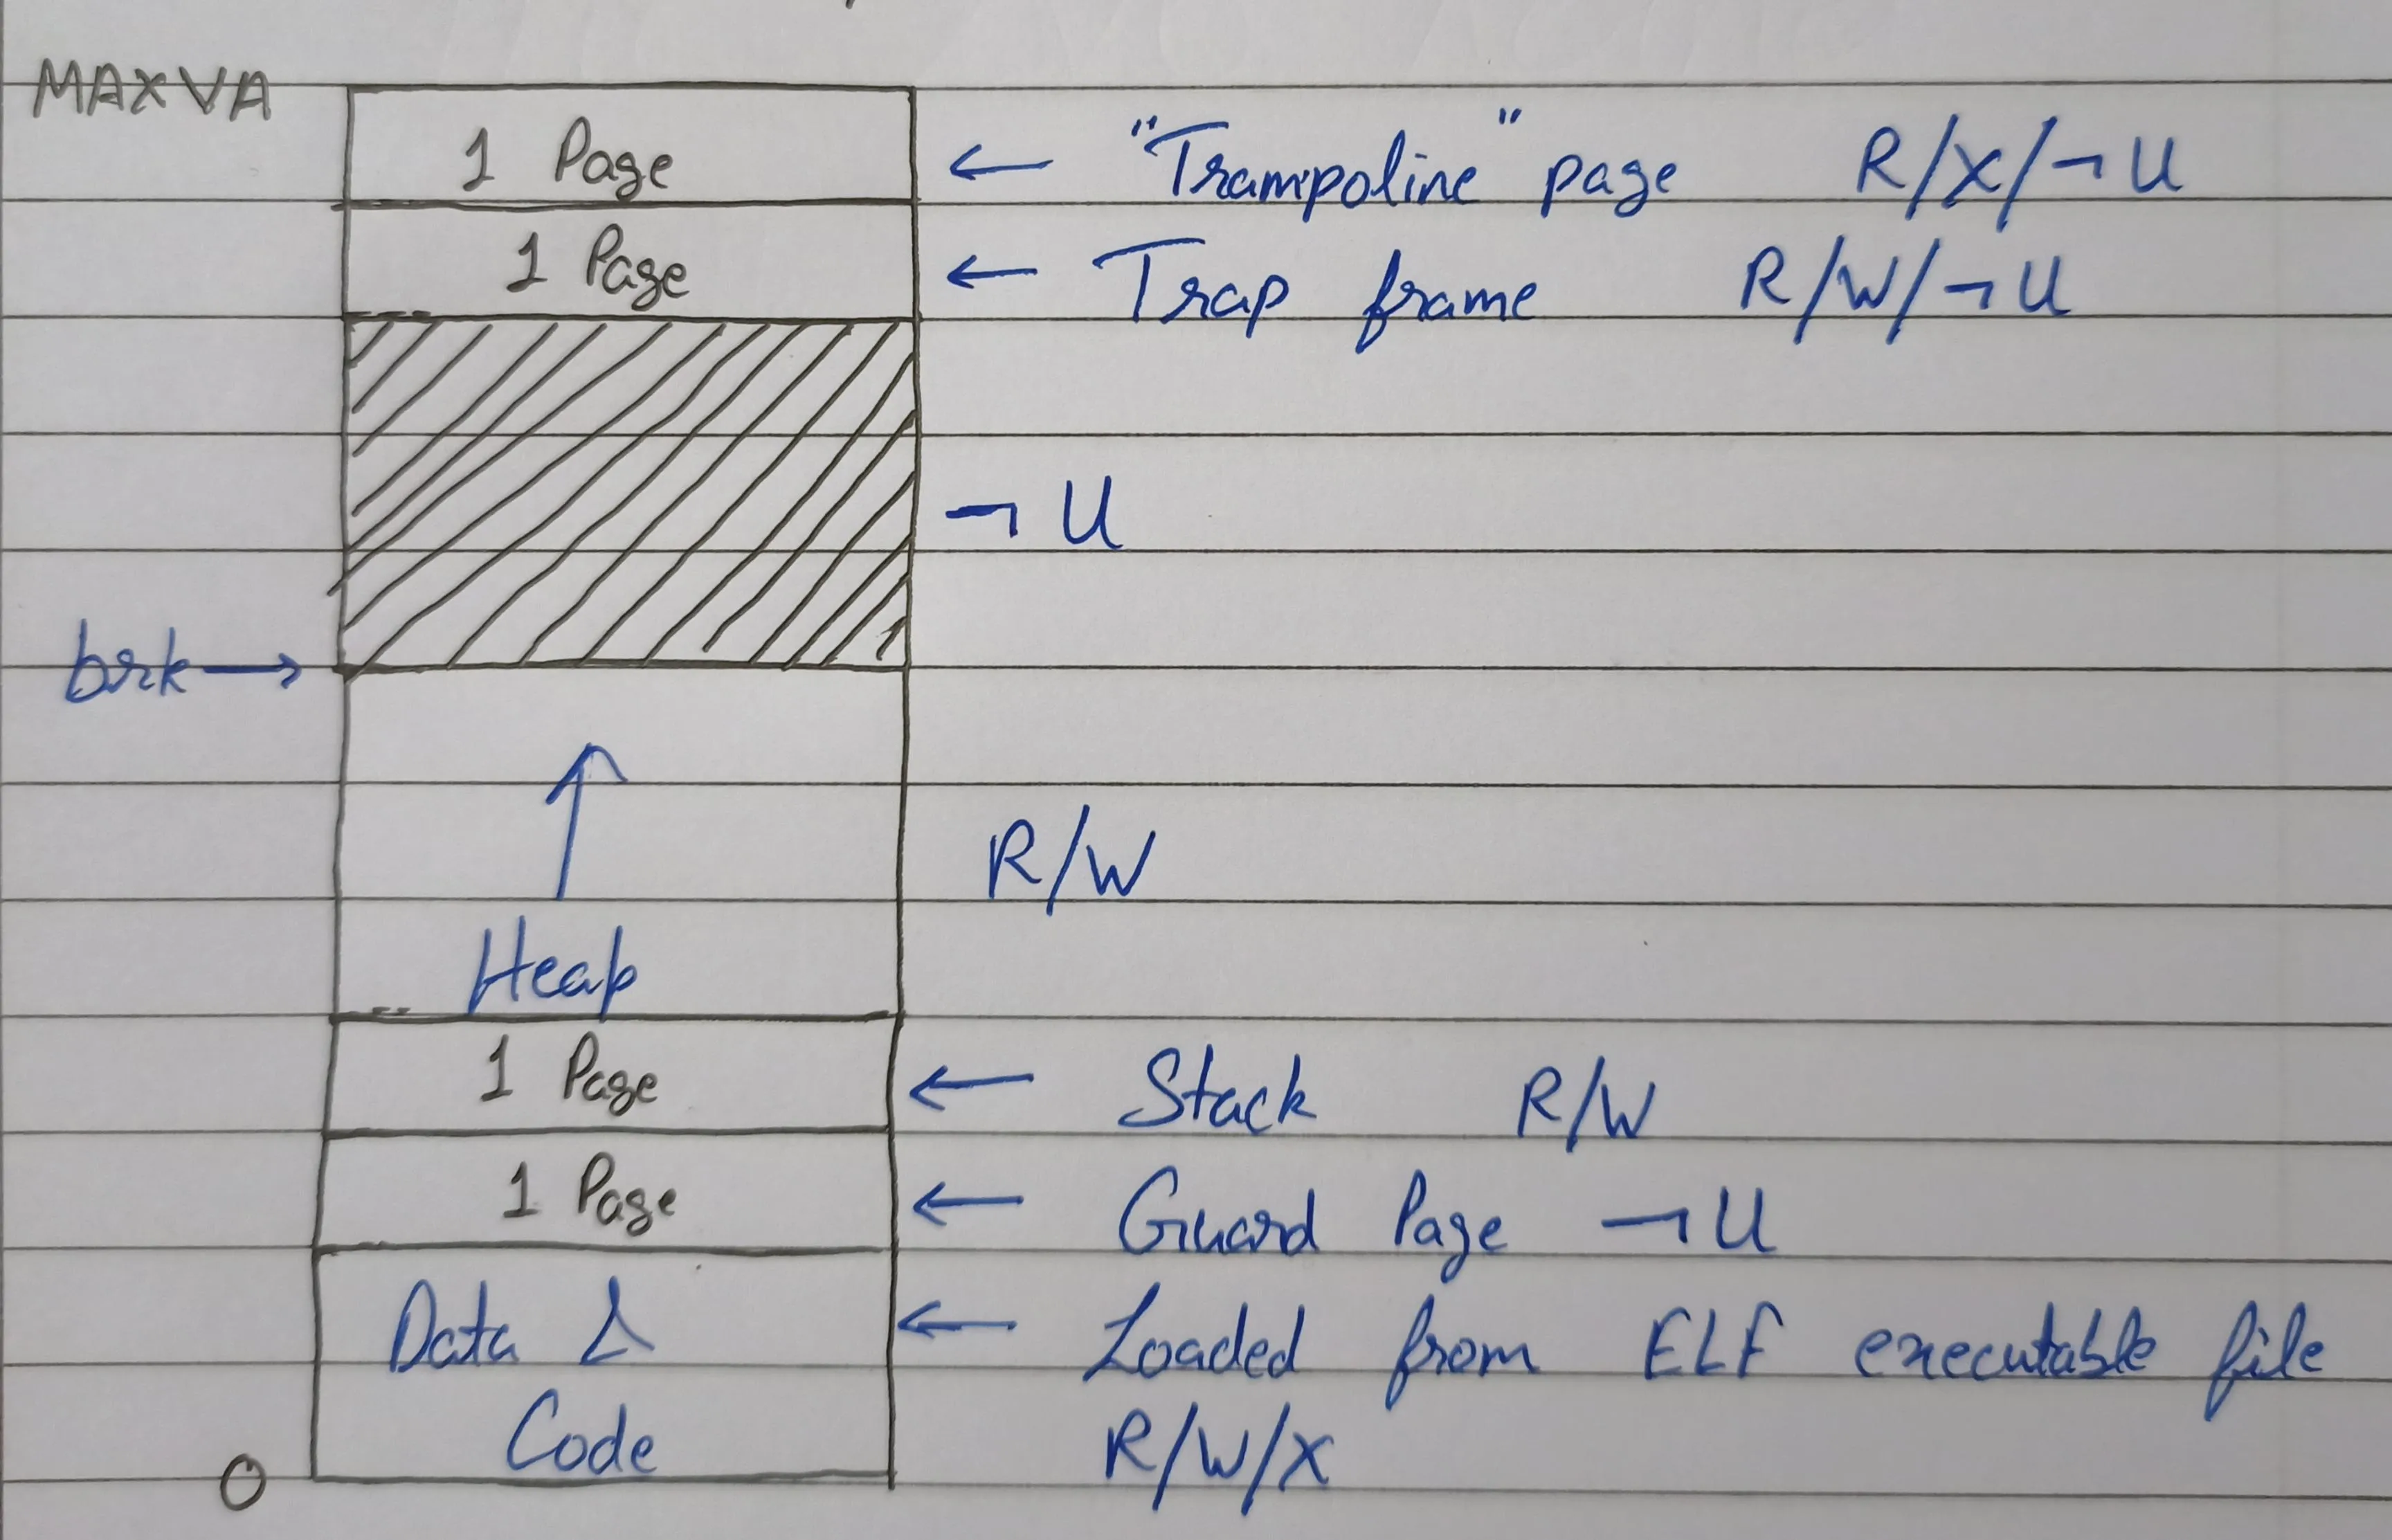 MAXVA
1 Page ← "Trampoline" page R/X/¬U
1 Page ← Trap frame R/W/¬U
¬U
brk →
R/W
Heap
1 Page ← Stack R/W
1 Page ← Guard Page ¬U
Data & ← Loaded from ELF executable file
Code R/W/X
0